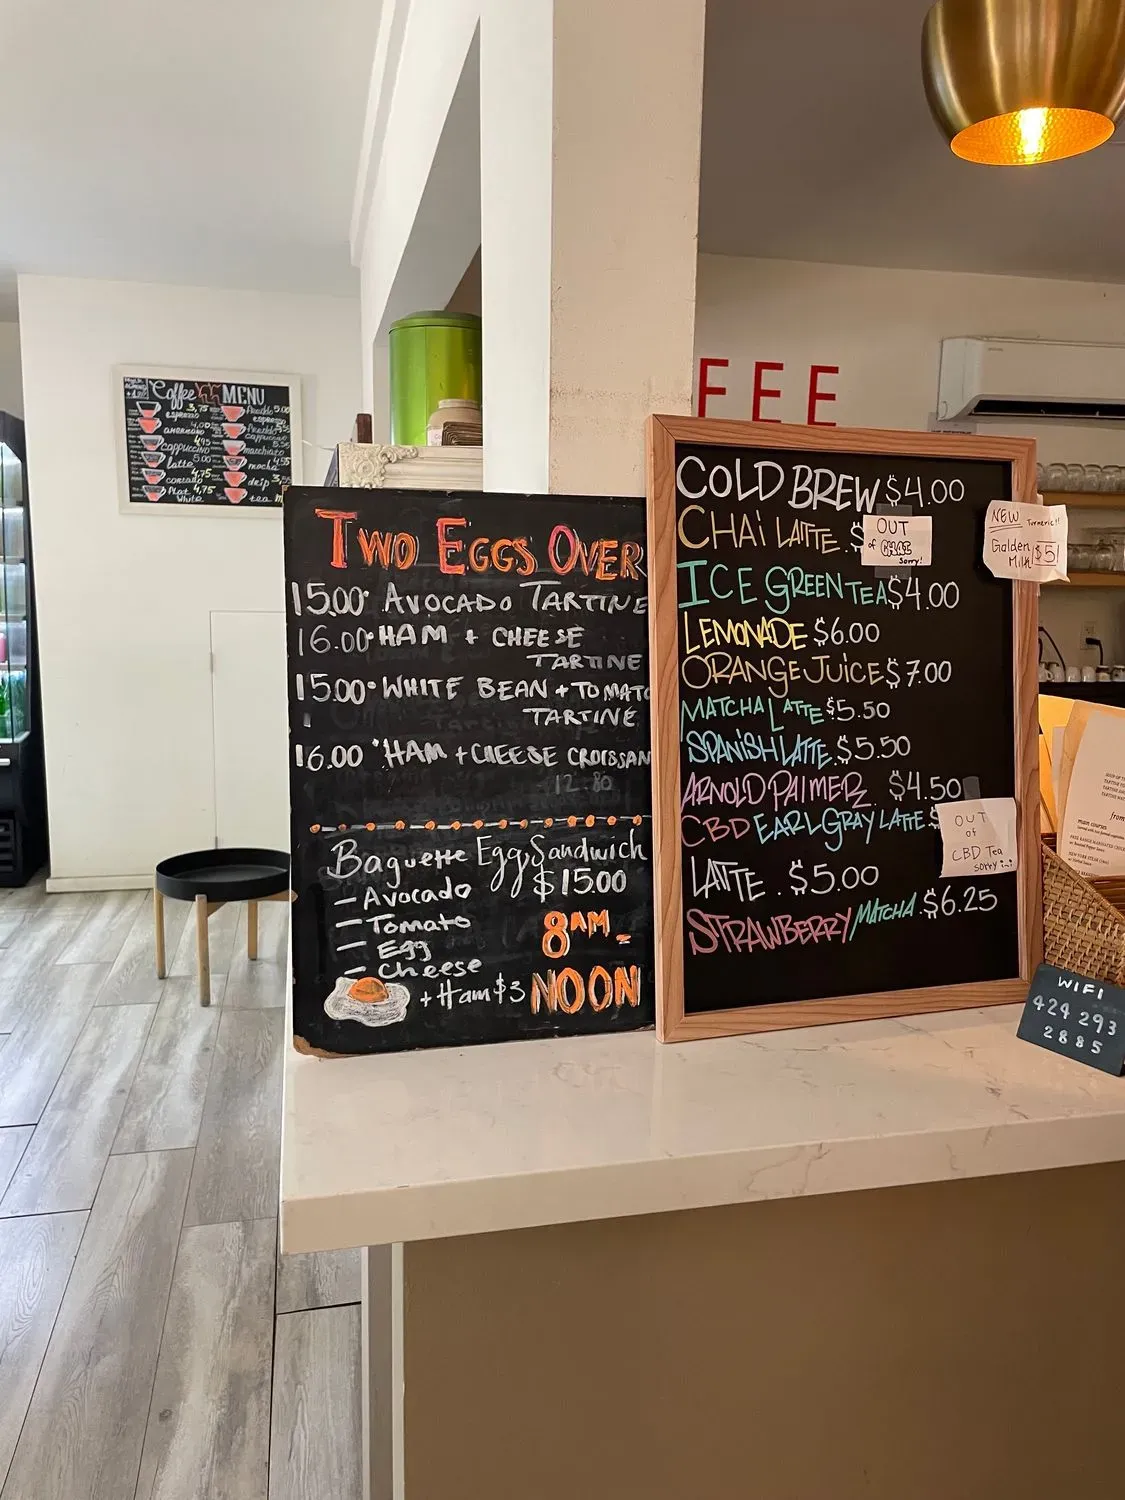 Coffee MENU
3,75
espresso
4,00
americano
4,75
cappuccino
5,00
latte
4,75
cortado
Flat 4,75
White
5.00
espresso
cappuccino
macchiato
mocha
4,55
drip
tea
FEE
TWO EGGS OVER
15.00 AVOCADO TARTINE
16.00 HAM + CHEESE
TARTINE
15.00 WHITE BEAN + TOMATO
TARTINE
16.00 HAM + CHEESE CROISSAN
Baguette Egg Sandwich
$15.00
- Avocado
- Tomato
- Egg
- Cheese
+ Ham $3
8AM -
NOON
COLD BREW $4.00
CHAi LATTE . $
OUT
of CHAI
Sorry!
NEW Turmeric!!
Golden
Milk $5!
ICE GREEN TEA $4.00
LEMONADE $6.00
ORANGE JUICE $7.00
MATCHA LATTE $5.50
SPANiSH LATTE . $5.50
ARNOLD PALMER $4.50
CBD EARL GRAY LATTE . $
OUT
of
CBD Tea
sorry
LATTE . $5.00
STRAWBERRY/MATCHA . $6.25
main courses
from
WIFI
424 293
2885